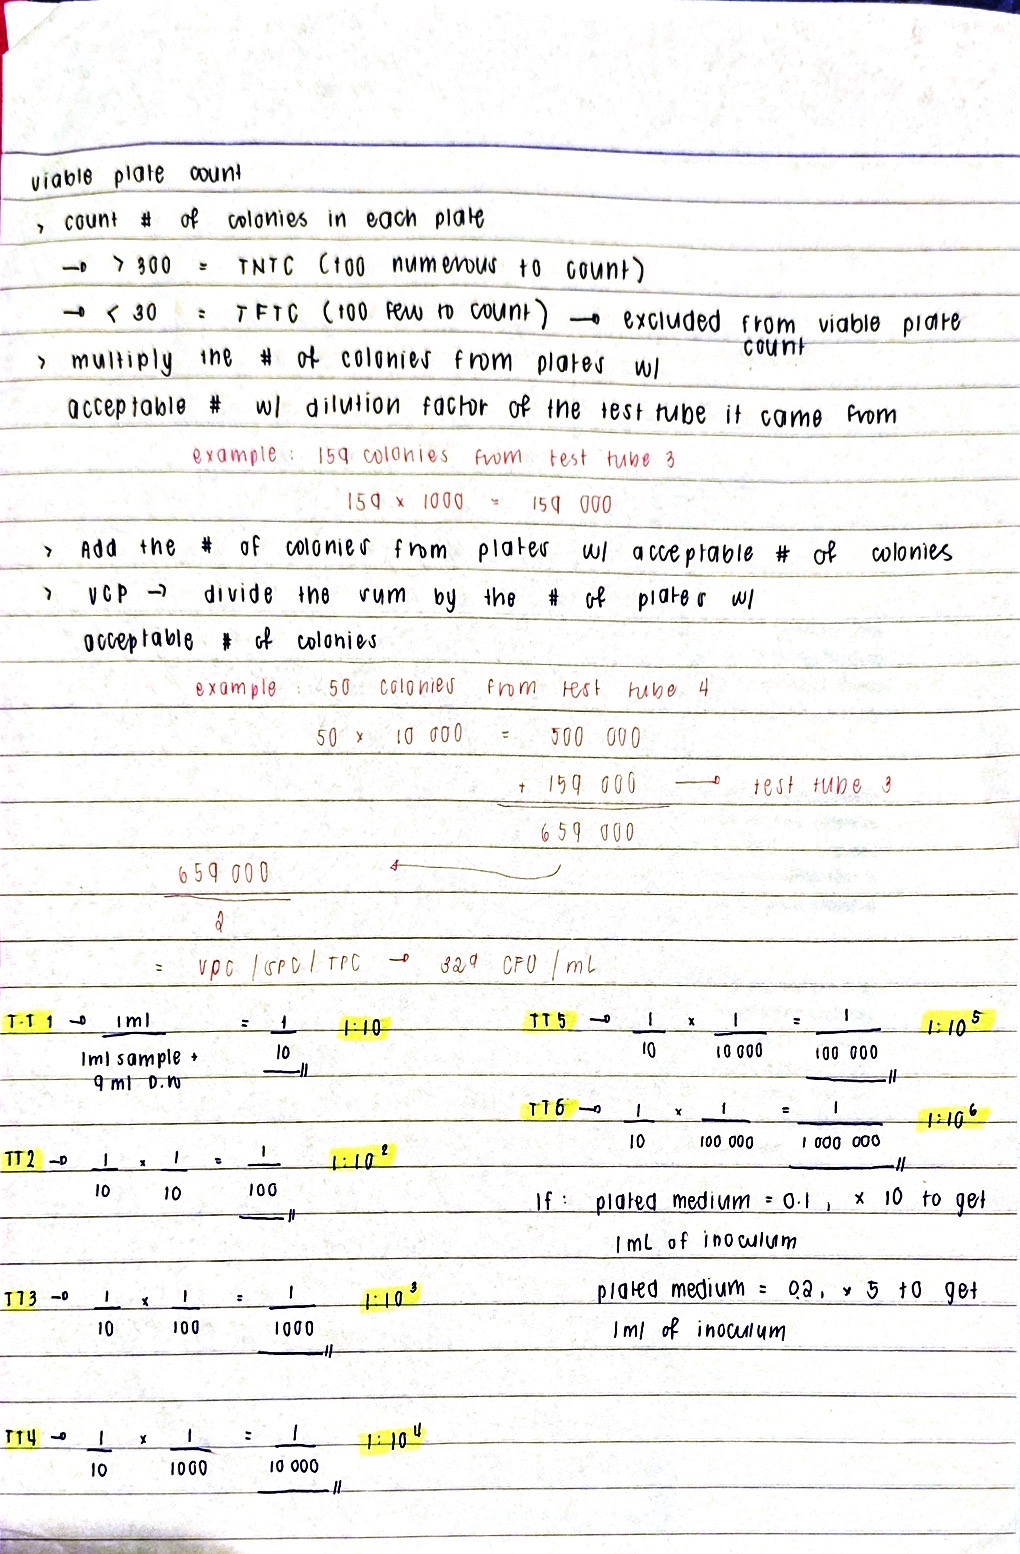 viable plate count
> count # of colonies in each plate
→ > 300 = TNTC (too numerous to count)
→ < 30 = TFTC (too few to count) → excluded from viable plate count
> multiply the # of colonies from plates w/
acceptable # w/ dilution factor of the test tube it came from
example: 159 colonies from test tube 3
159 x 1000 = 159 000
> Add the # of colonies from plates w/ acceptable # of colonies
> VCP → divide the sum by the # of plates w/
acceptable # of colonies
example: 50 colonies from test tube 4
50 x 10 000 = 500 000
+ 159 000 → test tube 3
659 000
659 000
2
= VPC / SPC / TPC → 329 CFU / mL
T.T 1 → 1ml / 1ml sample + 9 ml D.W = 1/10 1:10
TT2 → 1/10 x 1/10 = 1/100 1:10²
TT3 → 1/10 x 1/100 = 1/1000 1:10³
TT4 → 1/10 x 1/1000 = 1/10 000 1:10⁴
TT5 → 1/10 x 1/10 000 = 1/100 000 1:10⁵
TT6 → 1/10 x 1/100 000 = 1/1 000 000 1:10⁶
If: plated medium = 0.1, x 10 to get
1mL of inoculum
plated medium = 0.2, x 5 to get
1ml of inoculum